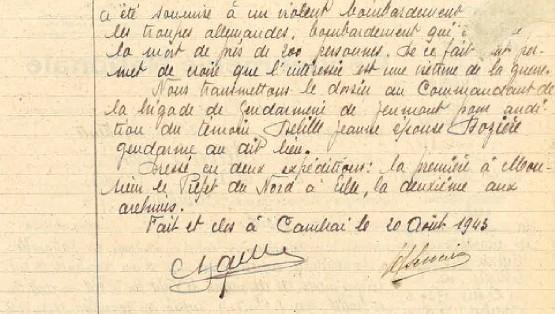 a été soumise à un violent bombardement
les troupes allemandes, bombardement qui
la mort de près de 200 personnes. Ce fait
met de croire que l'intéressée est une victime de la guerre.
Nous transmettons le dossier au Commandant de
la brigade de gendarmerie de Jeumont pour audi
tion du témoin Delille Jeanne épouse Lozière
gendarme au dit lieu.
Dressé en deux expéditions: la première à Mon-
sieur le Préfet du Nord à Lille, la deuxième aux
archives.
Fait et clos à Cambrai le 20 Août 1943